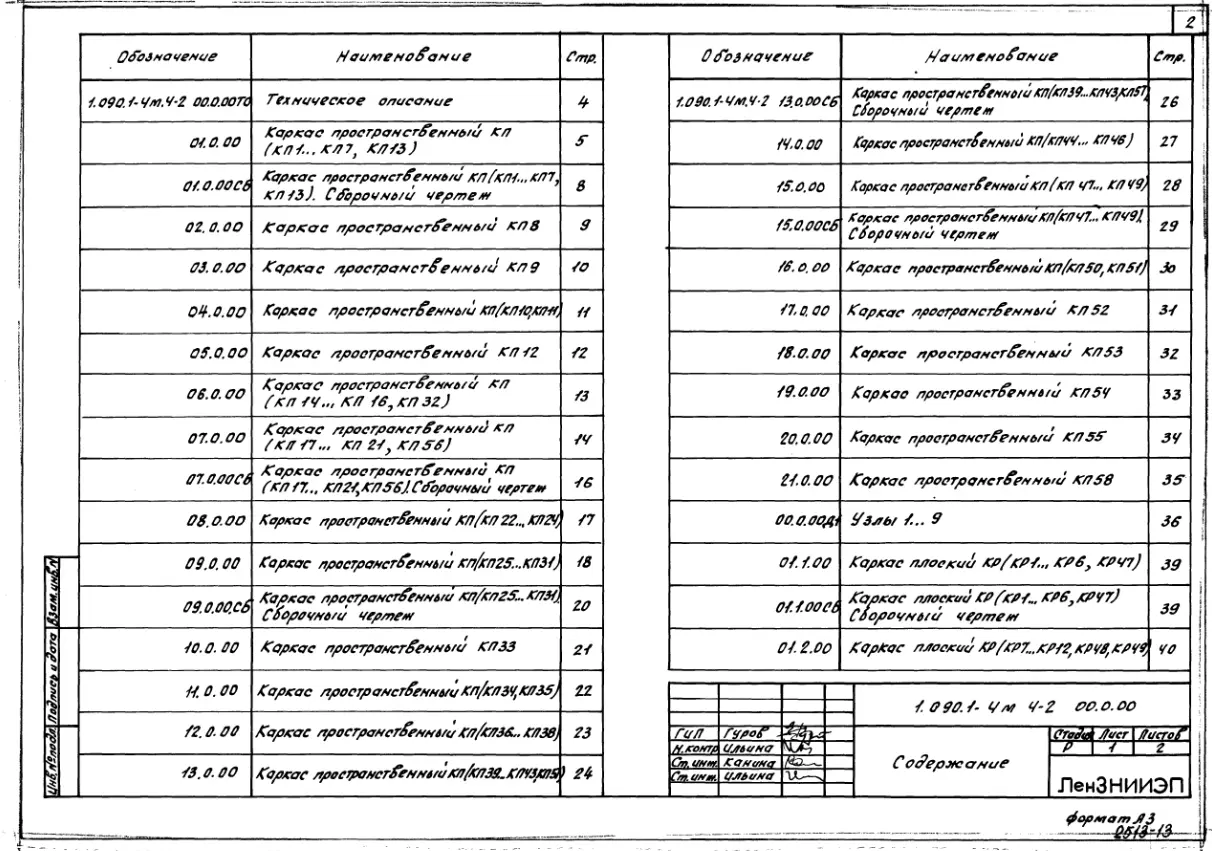 2
Обозначение Наименование Стр.
1.090.1-4м.4-2 00.0.00ТО Техническое описание 4
01.0.00 Каркас пространственный КП
(КП1... КП7, КП13) 5
01.0.00СБ Каркас пространственный КП(КП1...КП7,
КП13). Сборочный чертеж 8
02.0.00 Каркас пространственный КП8 9
03.0.00 Каркас пространственный КП9 10
04.0.00 Каркас пространственный КП(КП10,КП11) 11
05.0.00 Каркас пространственный КП12 12
06.0.00 Каркас пространственный КП
(КП14... КП16, КП32) 13
07.0.00 Каркас пространственный КП
(КП17... КП21, КП56) 14
07.0.00СБ Каркас пространственный КП
(КП17... КП21,КП56). Сборочный чертеж 16
08.0.00 Каркас пространственный КП(КП22...КП24) 17
09.0.00 Каркас пространственный КП(КП25...КП31) 18
09.0.00.СБ Каркас пространственный КП(КП25...КП31).
Сборочный чертеж 20
10.0.00 Каркас пространственный КП33 21
11.0.00 Каркас пространственный КП(КП34,КП35) 22
12.0.00 Каркас пространственный КП(КП36...КП38) 23
13.0.00 Каркас пространственный КП(КП39...КП43,КП57) 24
Обозначение Наименование Стр.
1.090.1-4м.4-2 13.0.00СБ Каркас пространственный КП(КП39...КП43,КП57)
Сборочный чертеж 26
14.0.00 Каркас пространственный КП(КП44... КП46) 27
15.0.00 Каркас пространственный КП(КП47... КП49) 28
15.0.00СБ Каркас пространственный КП(КП47... КП49).
Сборочный чертеж 29
16.0.00 Каркас пространственный КП(КП50, КП51) 30
17.0.00 Каркас пространственный КП52 31
18.0.00 Каркас пространственный КП53 32
19.0.00 Каркас пространственный КП54 33
20.0.00 Каркас пространственный КП55 34
21.0.00 Каркас пространственный КП58 35
00.0.00Д1 Узлы 1... 9 36
01.1.00 Каркас плоский КР(КР1... КР6, КР47) 39
01.1.00СБ Каркас плоский КР(КР1... КР6, КР47)
Сборочный чертеж 39
01.2.00 Каркас плоский КР(КР7...КР12,КР48,КР49) 40
1.090.1-4м 4-2 00.0.00
ГИП Гуров
Н.контр Ильина
Ст.инж. Канина
Ст.инж. Ильина
Содержание
Стадия Лист Листов
Р 1 2
ЛенЗНИИЭП
Формат А3
2513-13
Инв.№подл. Подпись и дата Взам.инв.№